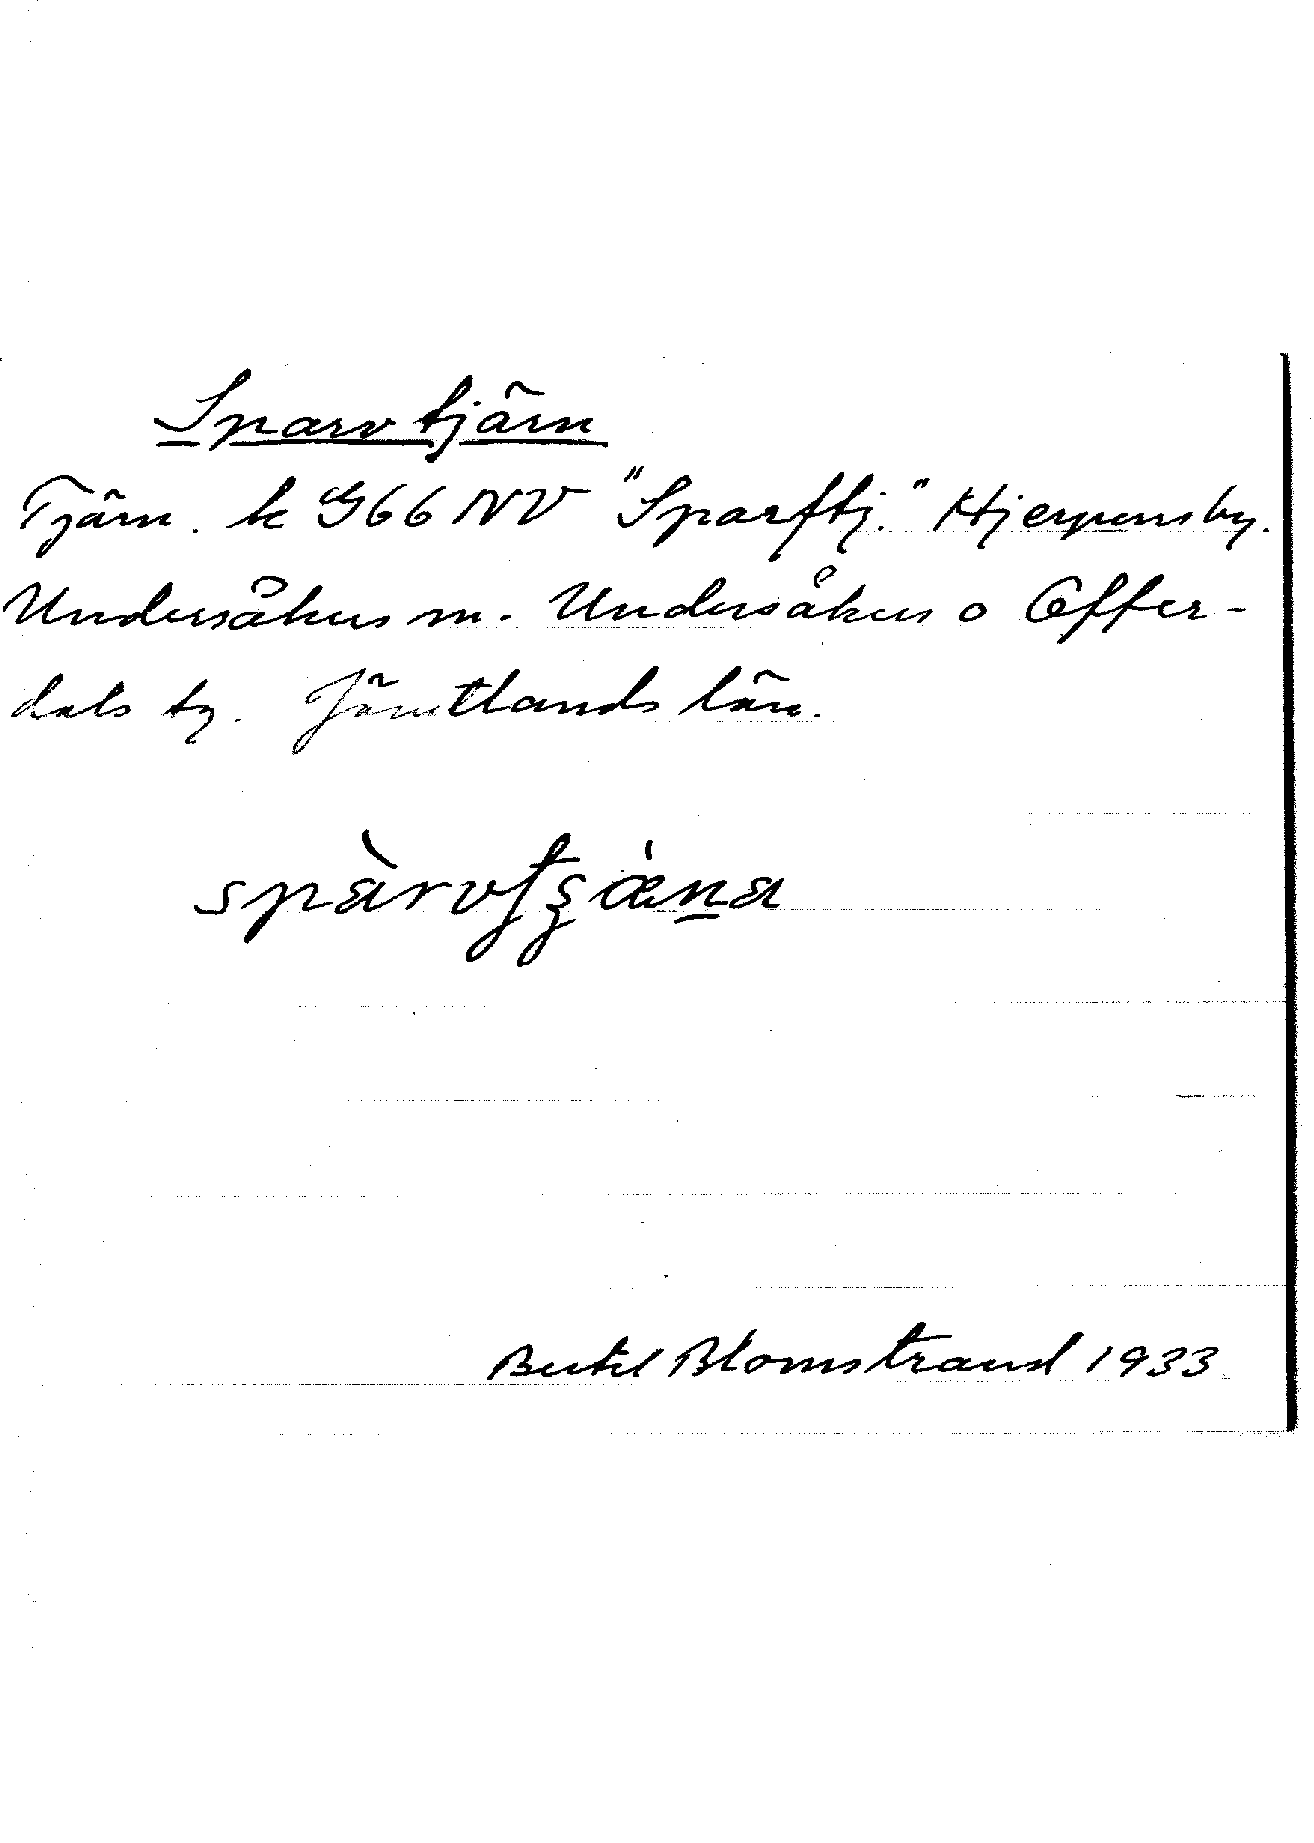 Sparvtjärn
Tjärn. k G66 NV "Sparftj." Hjerpensby.
Undersåkers sn. Undersåkers o Offer-
dals tg. Jämtlands län.
spàrvtȿæ̀na
Bertil Blomstrand 1933